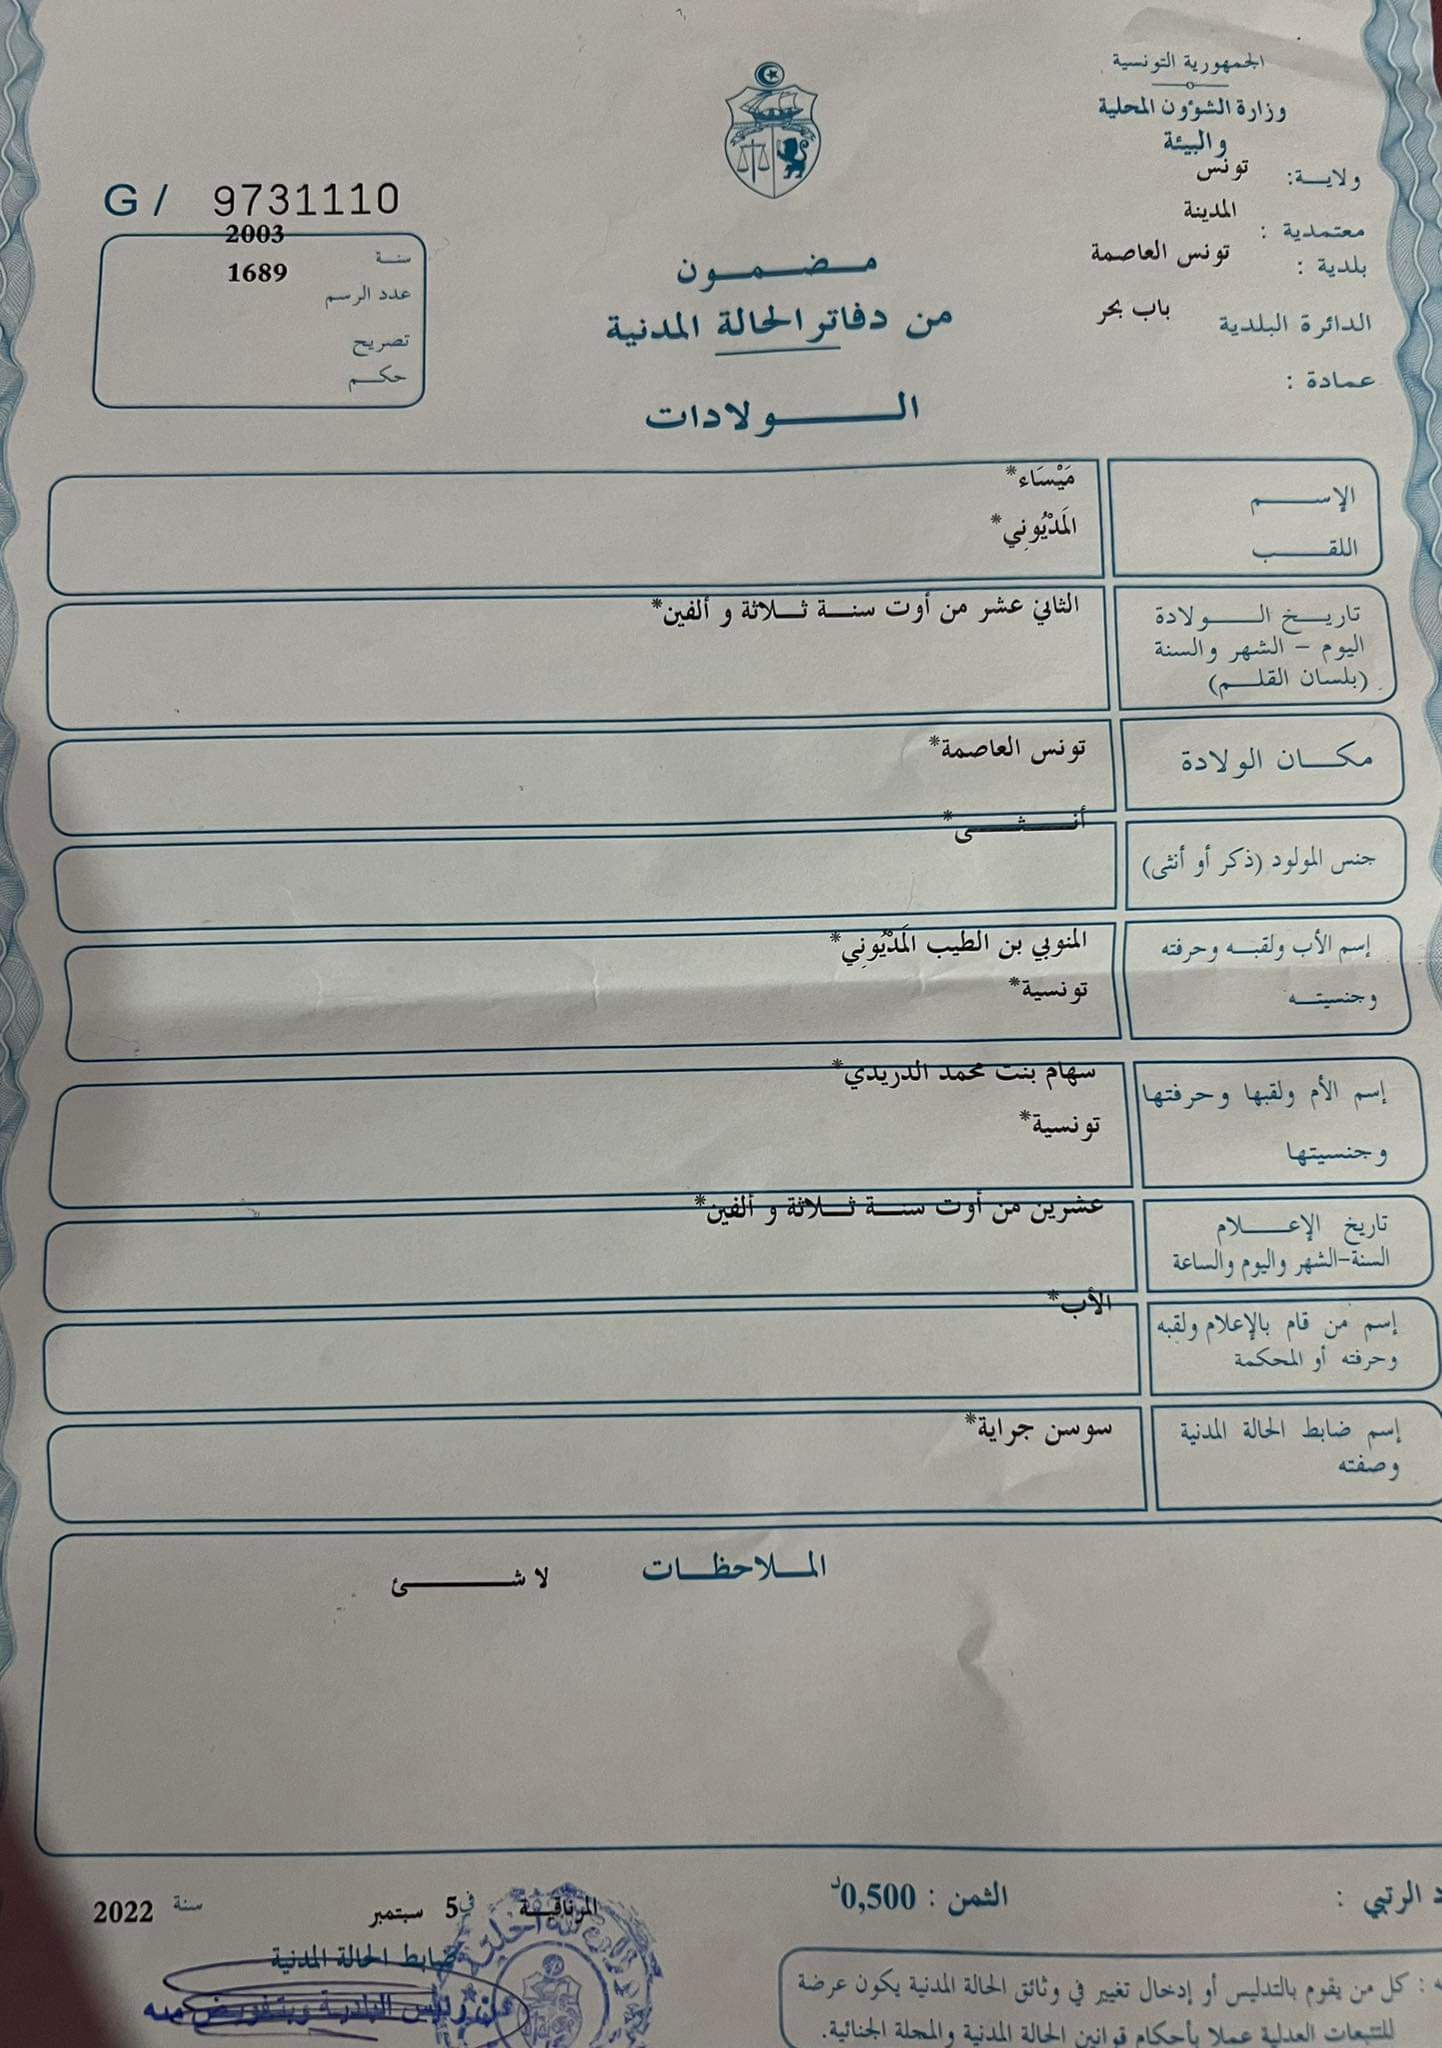 الجمهورية التونسية
وزارة الشؤون المحلية
والبيئة
ولاية: تونس
معتمدية : المدينة
بلدية : تونس العاصمة
الدائرة البلدية باب بحر
عمادة :
G / 9731110
سنة 2003
عدد الرسم 1689
تصريح
حكم
مضمون
من دفاتر الحالة المدنية
الولادات
الإسم مَيْسَاء*
اللقب المَدْيُونِي*
تاريخ الولادة الثاني عشر من أوت سنة ثلاثة و ألفين*
اليوم - الشهر والسنة
(بلسان القلم)
مكان الولادة تونس العاصمة*
جنس المولود (ذكر أو أنثى) أنثى*
إسم الأب ولقبه وحرفته المنوبي بن الطيب المَدْيُونِي*
وجنسيته تونسية*
إسم الأم ولقبها وحرفتها سهام بنت محمد الدريدي*
وجنسيتها تونسية*
تاريخ الإعلام عشرين من أوت سنة ثلاثة و ألفين*
السنة-الشهر واليوم والساعة
إسم من قام بالإعلام ولقبه الأب*
وحرفته أو المحكمة
إسم ضابط الحالة المدنية سوسن جراية*
وصفته
الملاحظات
لا شئ
د الرتبي :
الثمن : 0,500د
المرناقية في 5 سبتمبر سنة 2022
ضابط الحالة المدنية
عن رئيس البلدية وبتفويض منه
ه : كل من يقوم بالتدليس أو إدخال تغيير في وثائق الحالة المدنية يكون عرضة
للتتبعات العدلية عملا بأحكام قوانين الحالة المدنية والمجلة الجنائية.